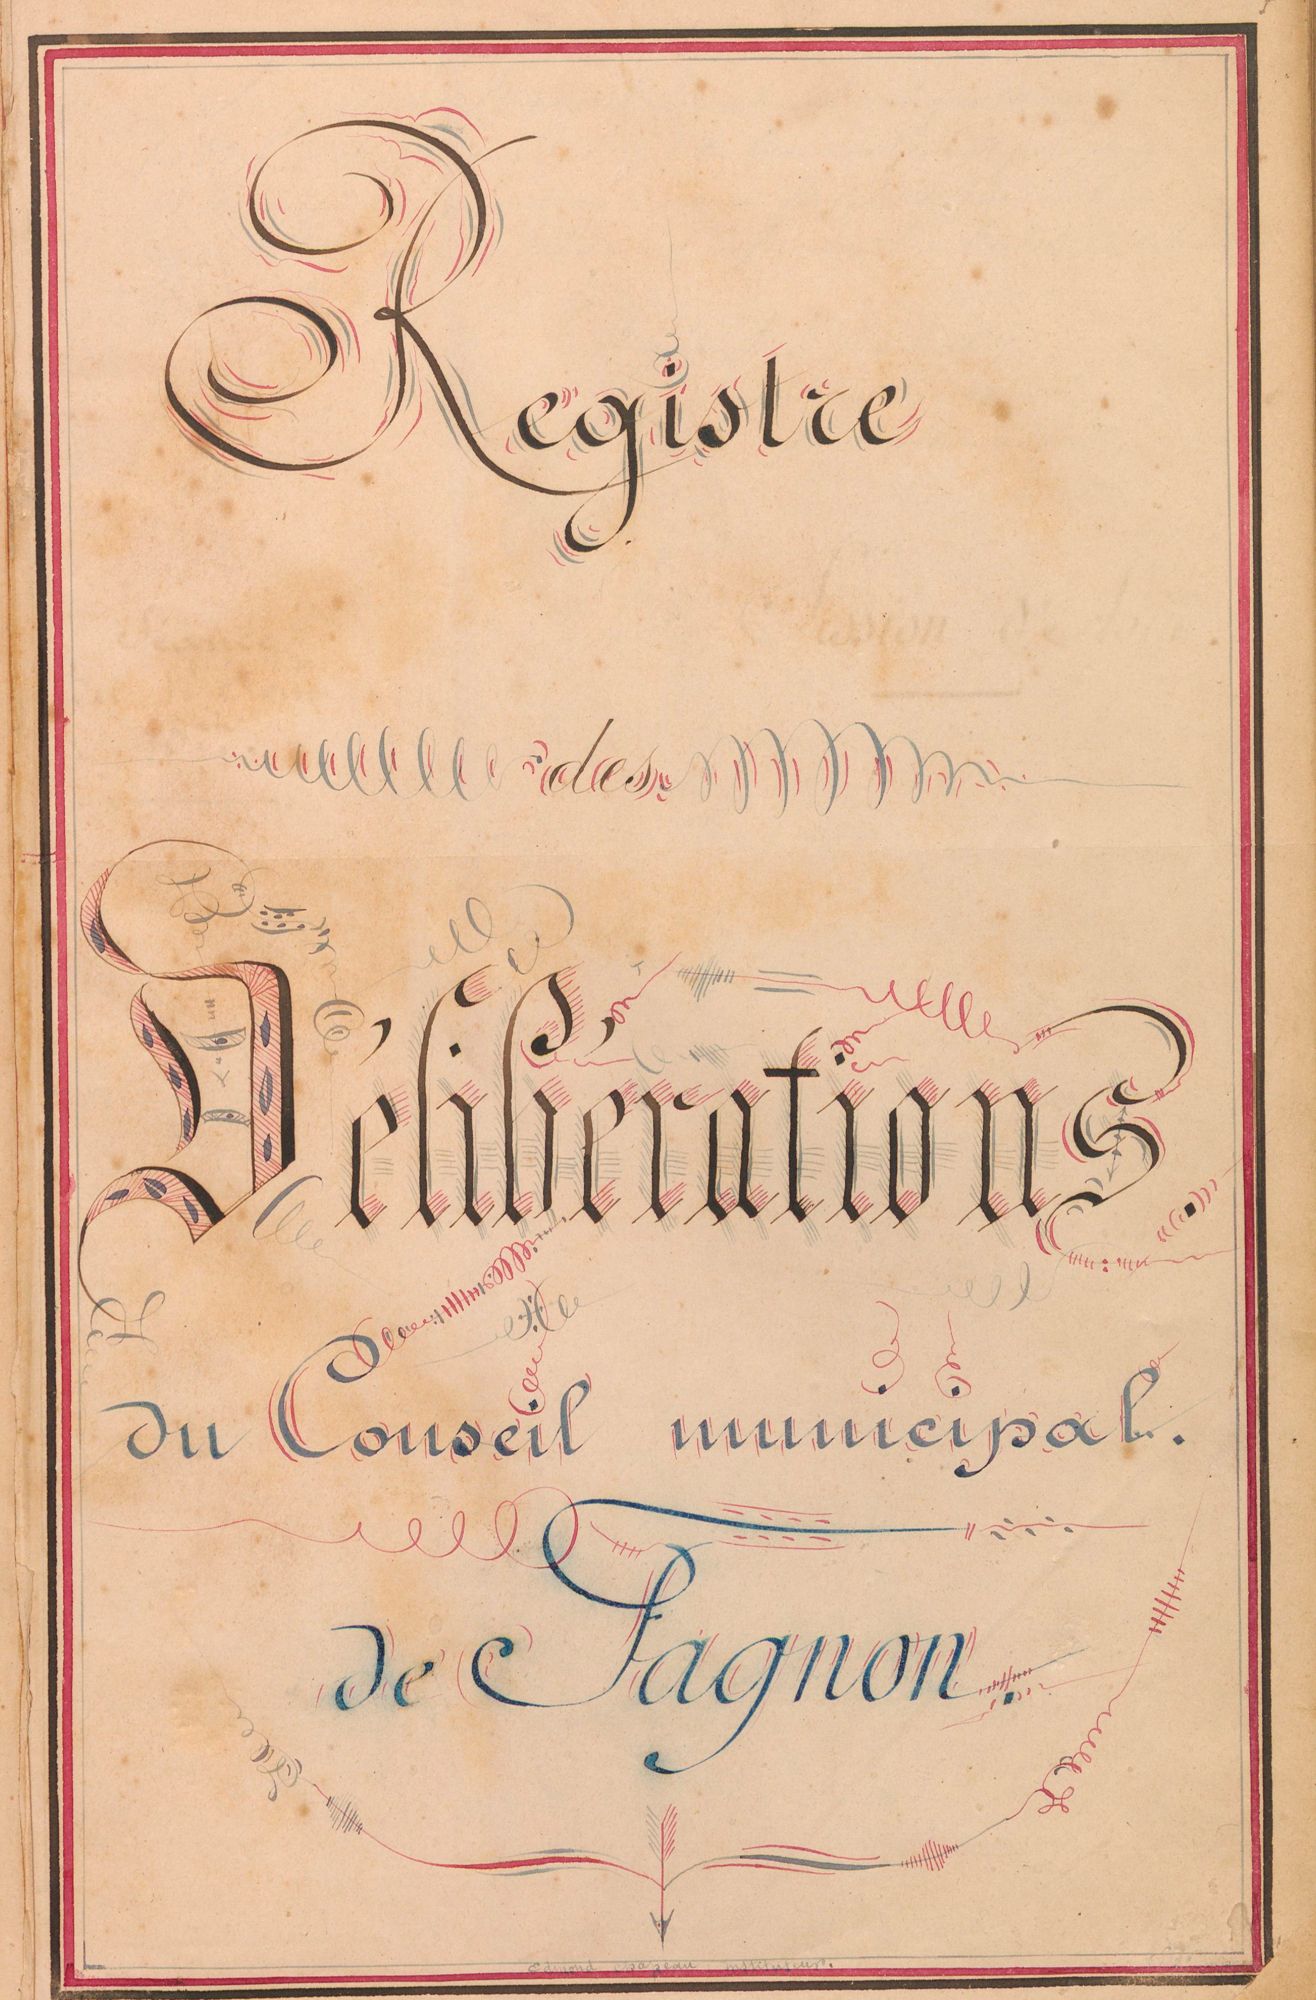 Registre
des
Délibérations.
du Conseil municipal.
de Fagnon
Edmond instituteur.